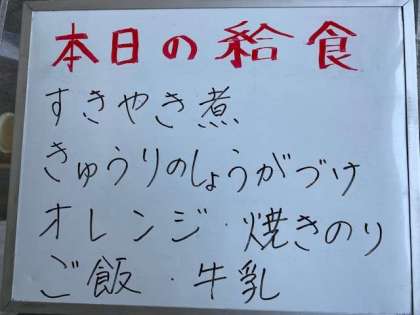 本日の給食
すきやき煮
きゅうりのしょうがづけ
オレンジ・焼きのり
ご飯・牛乳